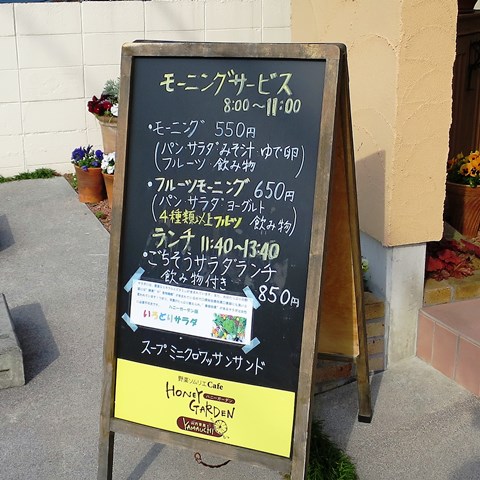 モーニングサービス
8:00〜11:00
・モーニング 550円
(パン サラダ みそ汁 ゆで卵
フルーツ 飲み物)
・フルーツモーニング 650円
(パン サラダ ヨーグルト
4種類以上フルーツ 飲み物)
ランチ 11:40〜13:40
・ごちそうサラダランチ
飲み物付き 850円
ハニーガーデン風
いろどりサラダ
スープ ミニクロワッサンサンド
野菜ソムリエCafe
HONEY ハニーガーデン
GARDEN
YAMAUCHI